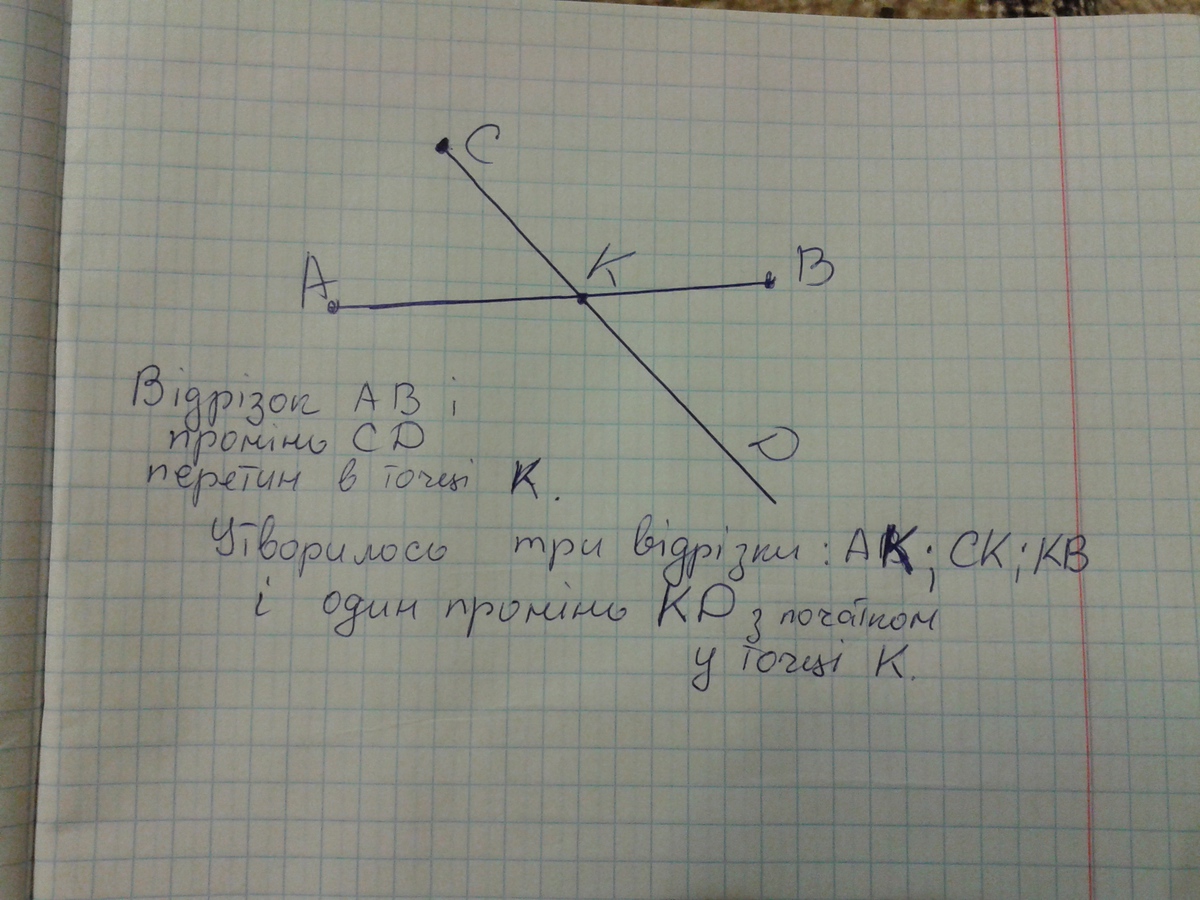 C
K
B
A
D
Відрізок AB і
промінь CD
перетин в точці K.
Утворилось три відрізки: AK; CK; KB
і один промінь KD з початком
у точці K.